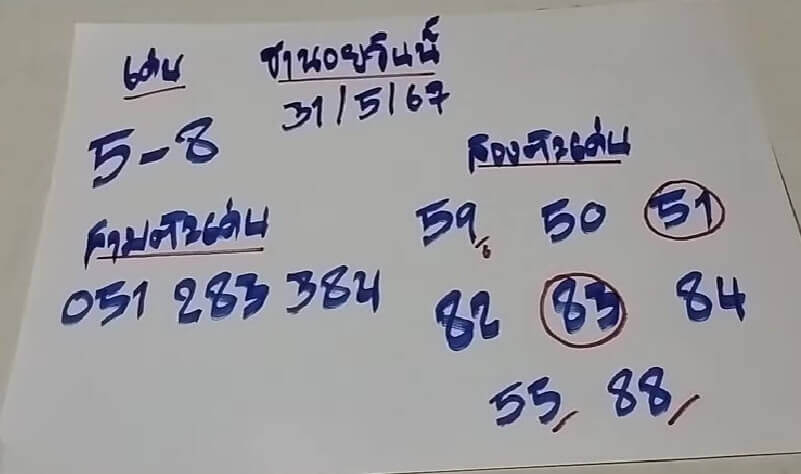 เด่น
ฮานอยวันนี้
31/5/67
5-8
สองตัวเด่น
59 50 51
สามตัวเด่น
051 283 384
82 83 84
55 88